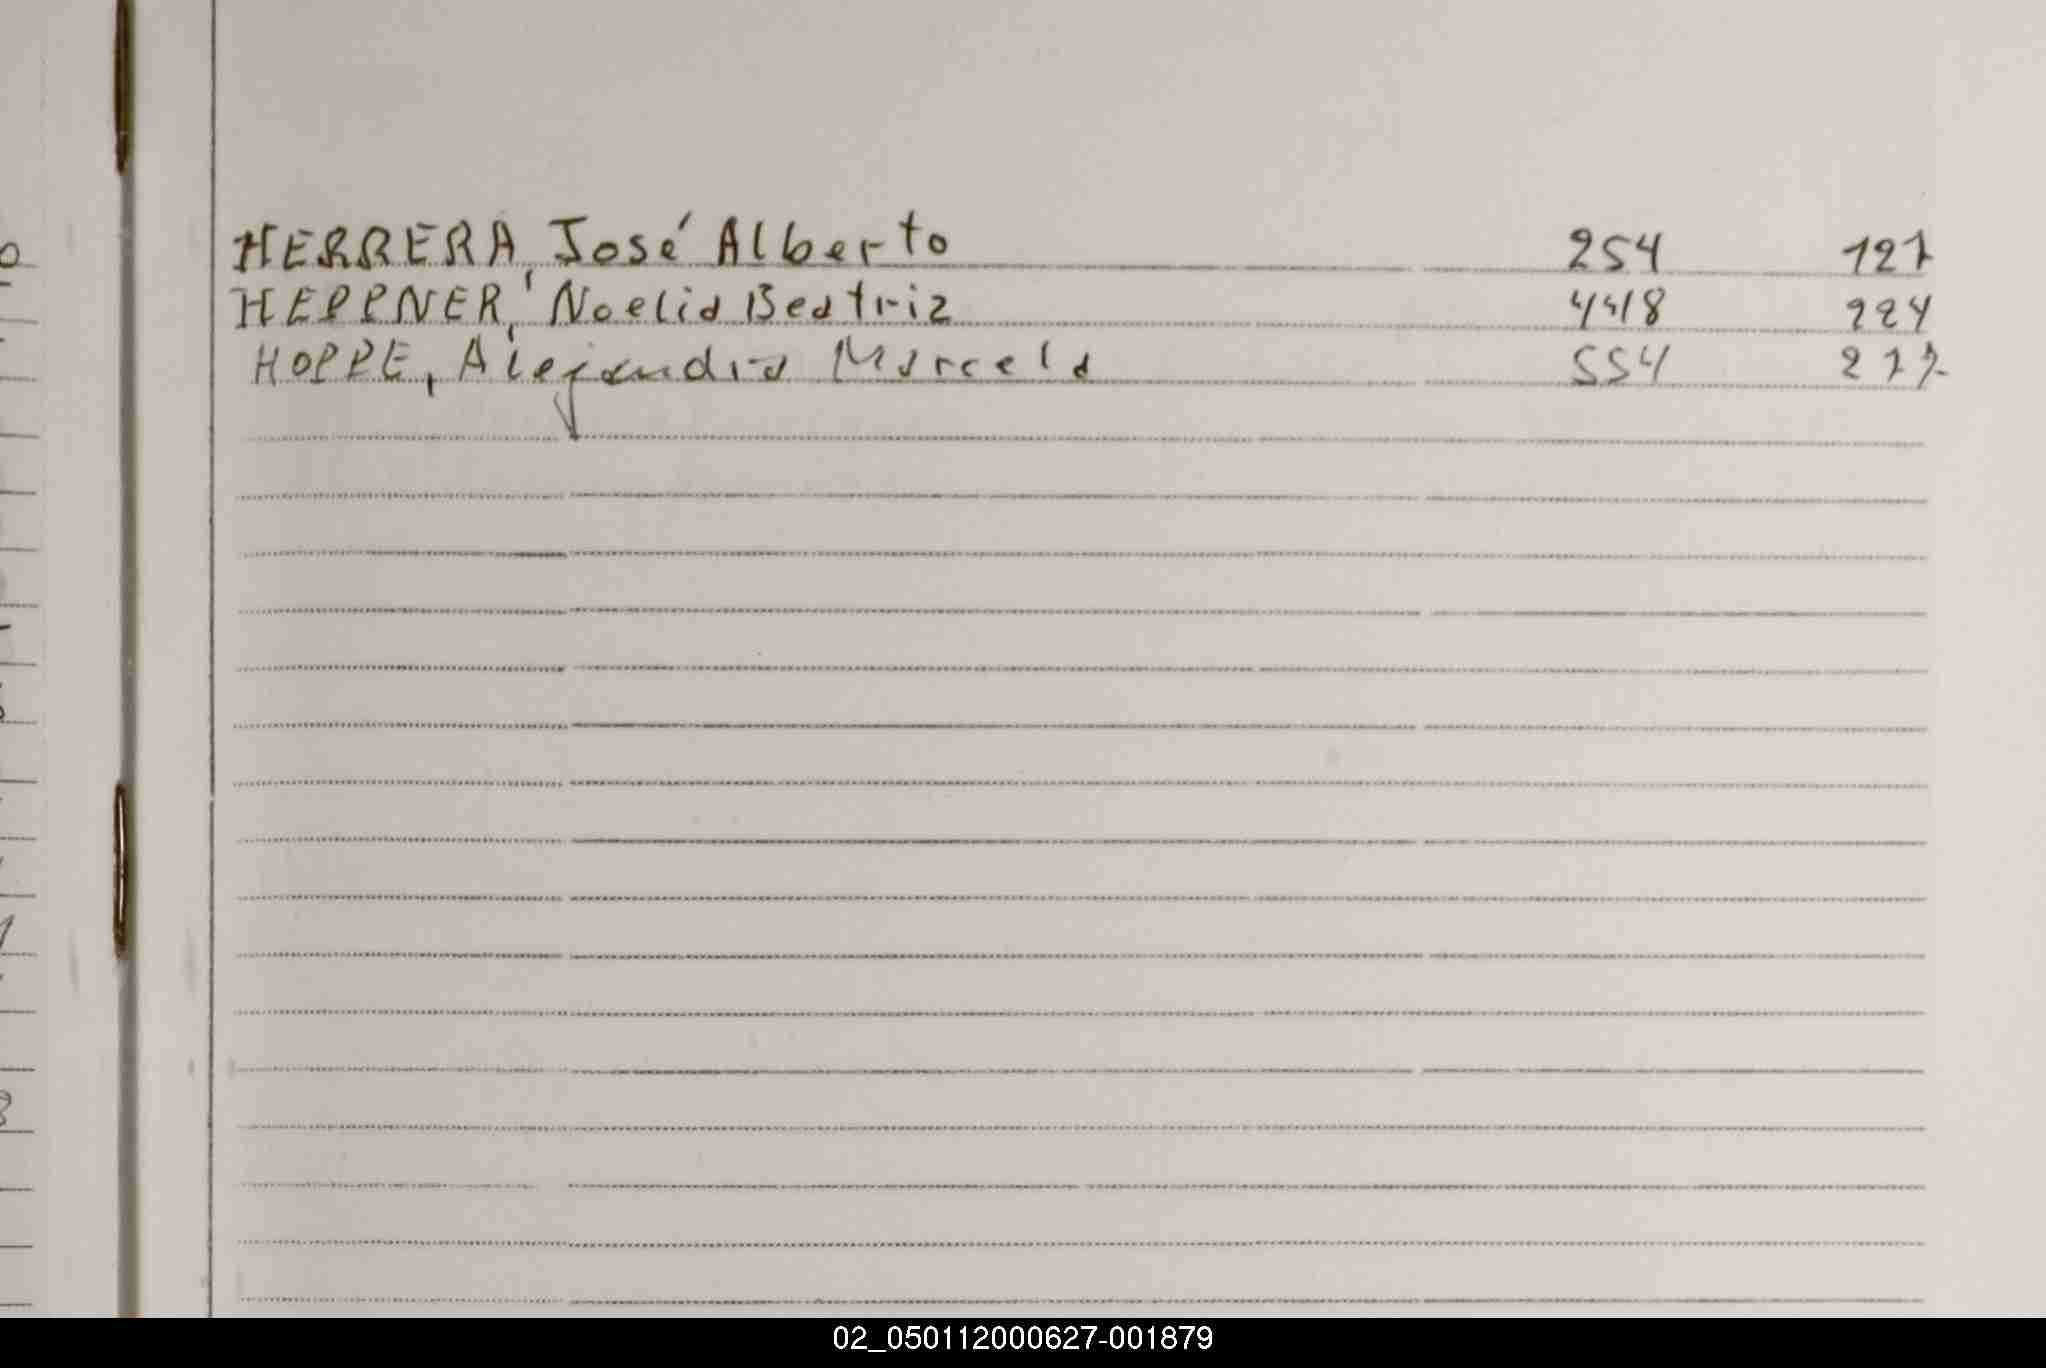 HERRERA, José Alberto 254 127
HEPPNER, Noelia Beatriz 448 224
HOPPE, Alejandra Marcela 554 277
02_050112000627-001879